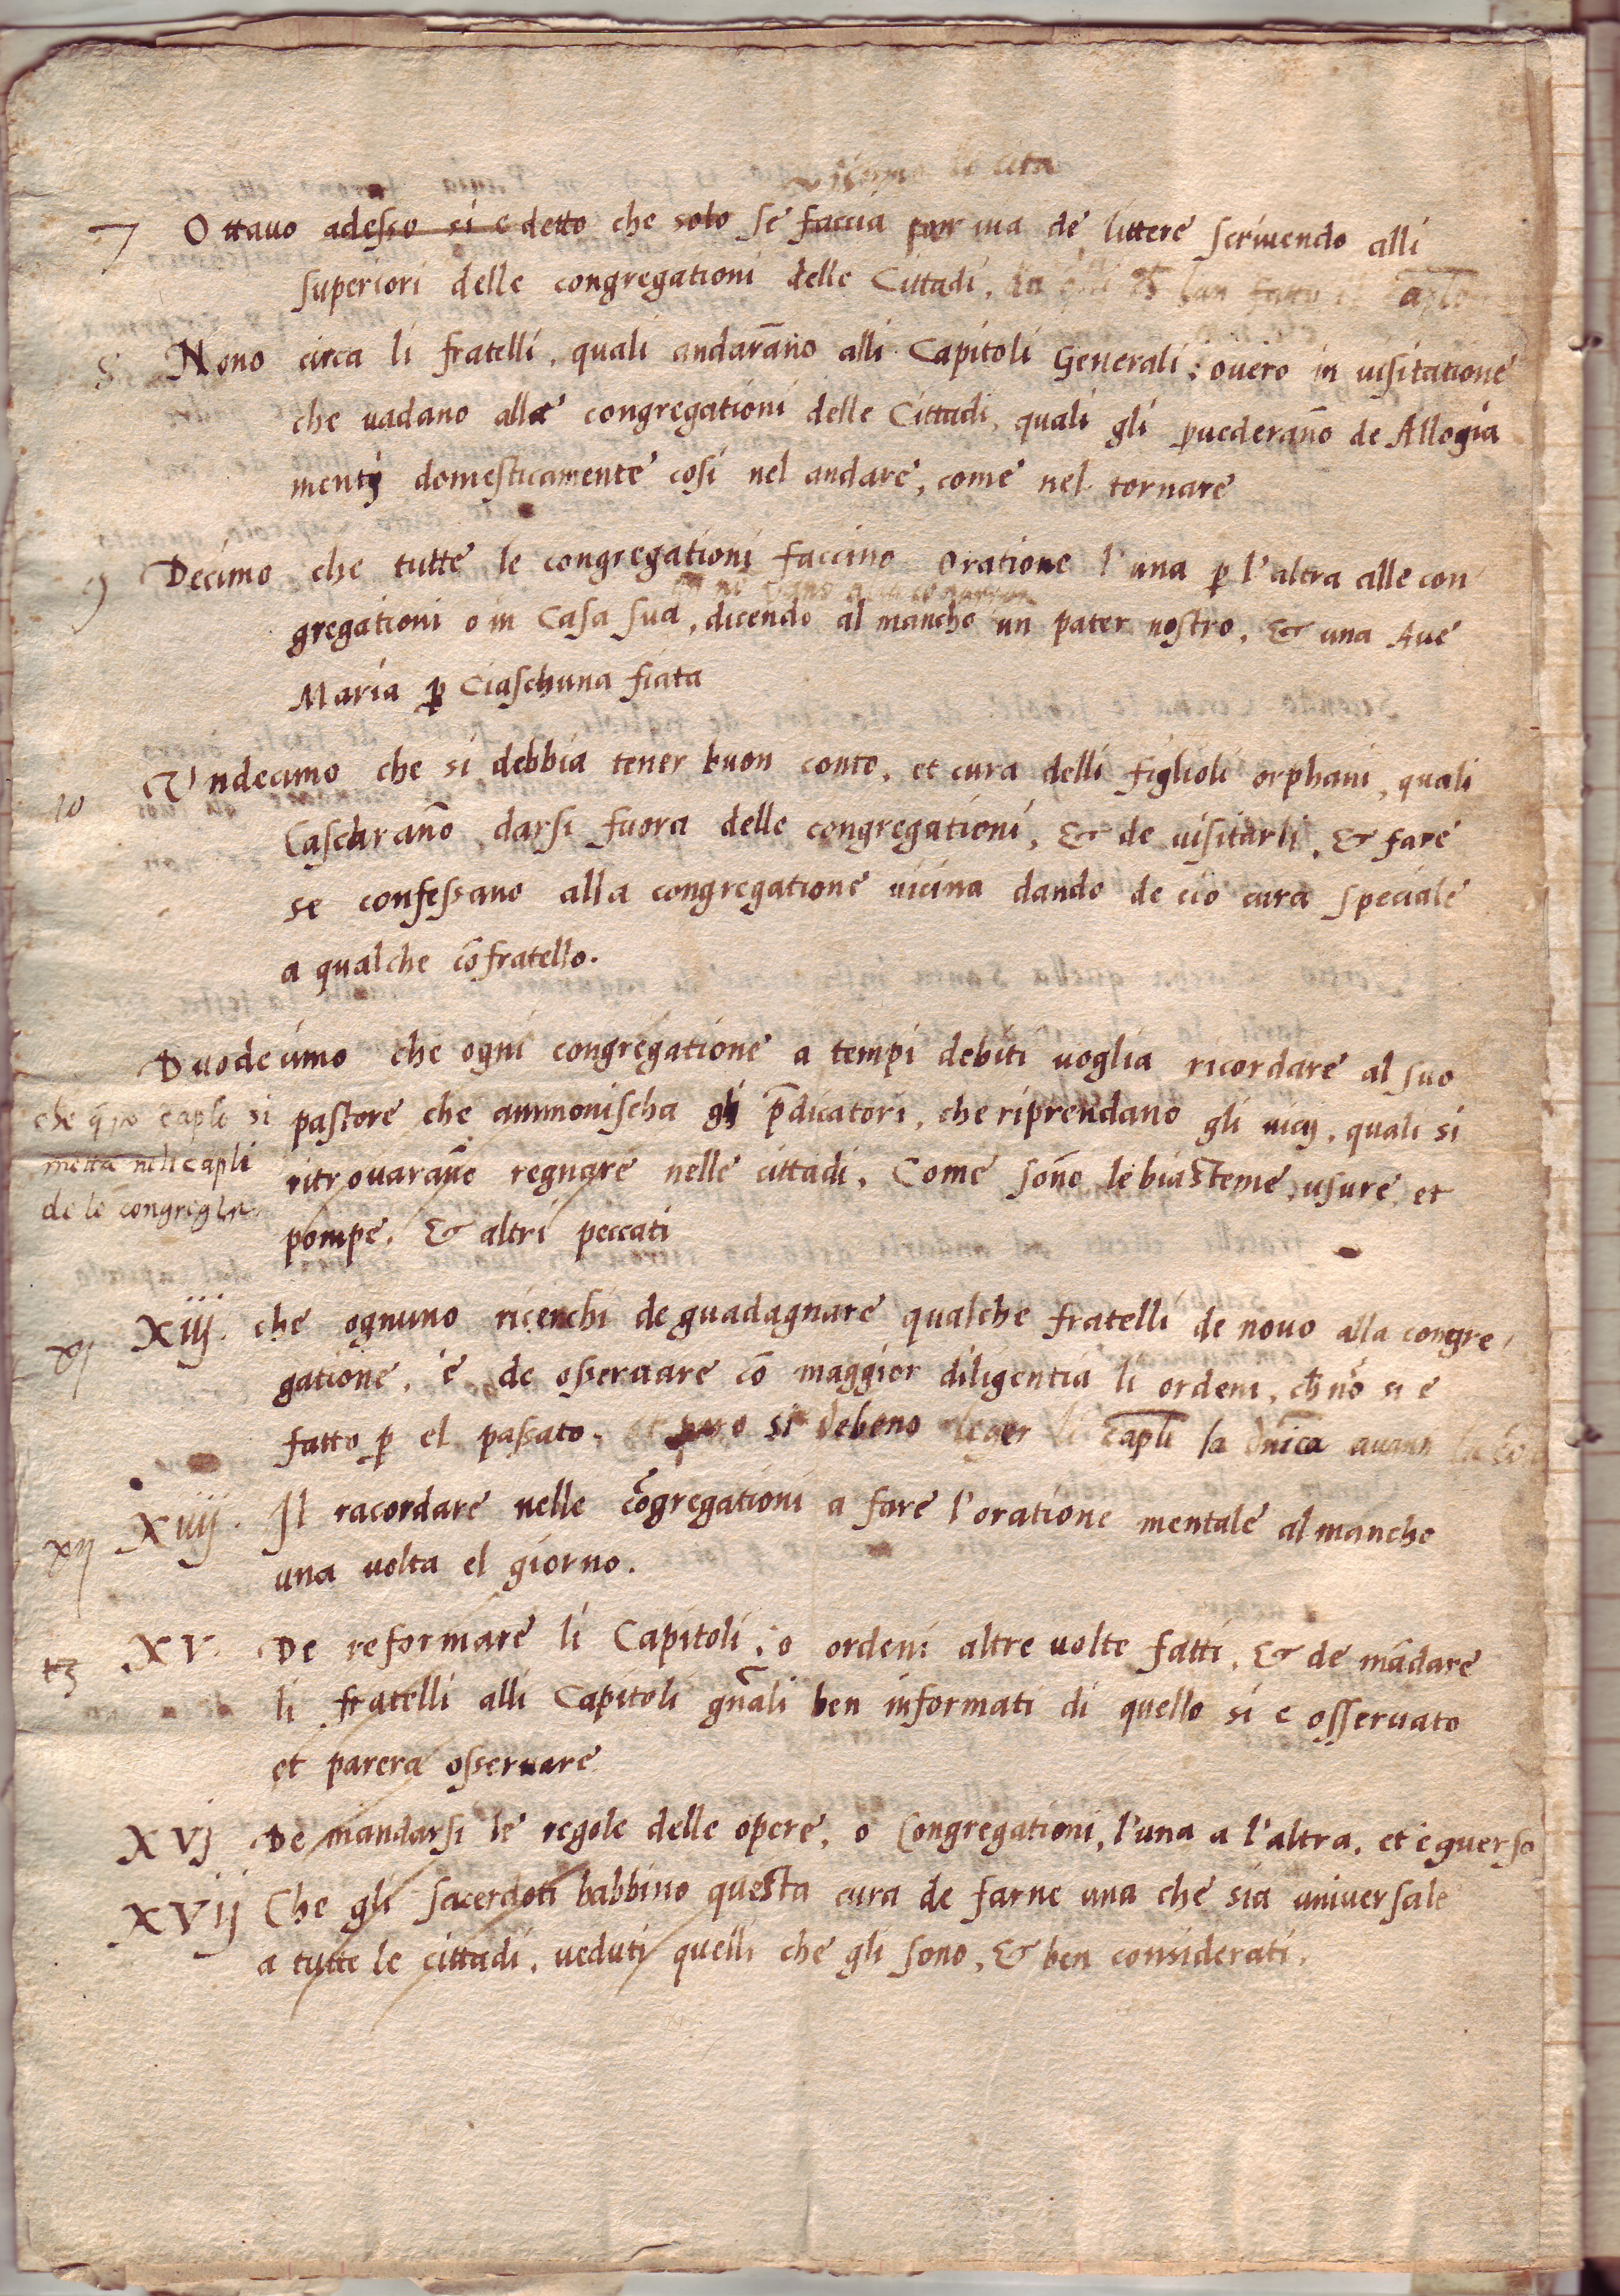 la cita
7 Ottauo adesso si e detto che solo se faccia per uia de littere scriuendo alli
superiori delle congregationi delle Cittadi,
8 Nono circa li fratelli, quali andarāno alli Capitoli Generali; ouero in uisitatione
che uadano alle congregationi delle Cittadi, quali gli puederāno de Allogia
mentij domesticamente cosi nel andare, come nel tornare
9 Decimo che tutte le congregationi faccino oratione l'una p l'altra alle con
gregationi o in Casa sua, dicendo al mancho un pater nostro, & una Aue
Maria p Ciaschuna fiata
10 Vndecimo che si debbia tener buon conto, et cura delli figlioli orphani, quali
lascarāno darsi fuora delle congregationi, & de uisitarli, & fare
se confessano alla congregatione uicina dando de cio cura speciale
a qualche cōfratello.
Duodecimo che ogni congregatione a tempi debiti uoglia ricordare al suo
che q̄sto caplo si
metta neli capli
de le congreg.ni
pastore che ammonischa gli p̄dicatori, che riprendano gli uicij, quali si
ritrouarāno regnare nelle cittadi, Come sono le biasteme, usure, et
pompe, & altri peccati
xj XIIJ. che ognuno ricerchi de guadagnare qualche fratelli de nouo alla congre
gatione, e de osseruare cō maggior diligentia li ordeni, ch nō si e
fatto p el passato. et pero si debeno leger li capli la dnica auanti
xij XIIIJ. Il racordare nelle cōgregationi a fare l'oratione mentale al mancho
una uolta el giorno.
13 XV. De reformare li Capitoli, o ordeni altre uolte fatti, & de mādare
li fratelli alli Capitoli gn̄ali ben informati di quello si e osseruato
et parera osseruare
XVJ De mandarsi le regole delle opere, o Congregationi, l'una a l'altra, et e guerso
XVIJ Che gli sacerdoti habbino questa cura de farne una che sia uniuersale
a tutte le cittadi, ueduti quelli che gli sono, & ben considerati.